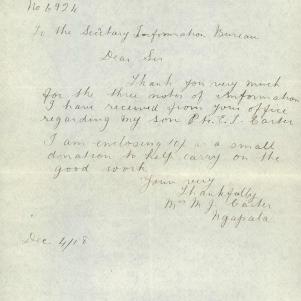 No 6924
To the Secretary Information Bureau
Dear Sir
Thank you very much
for the three notes of information
I have received from your office
regarding my son Pte. E. L. Carter
I am enclosing as a small
donation to help carry on the
good work
Your very
Thankfully
Mrs M. J. Carter
Ngapala
Dec 4/18